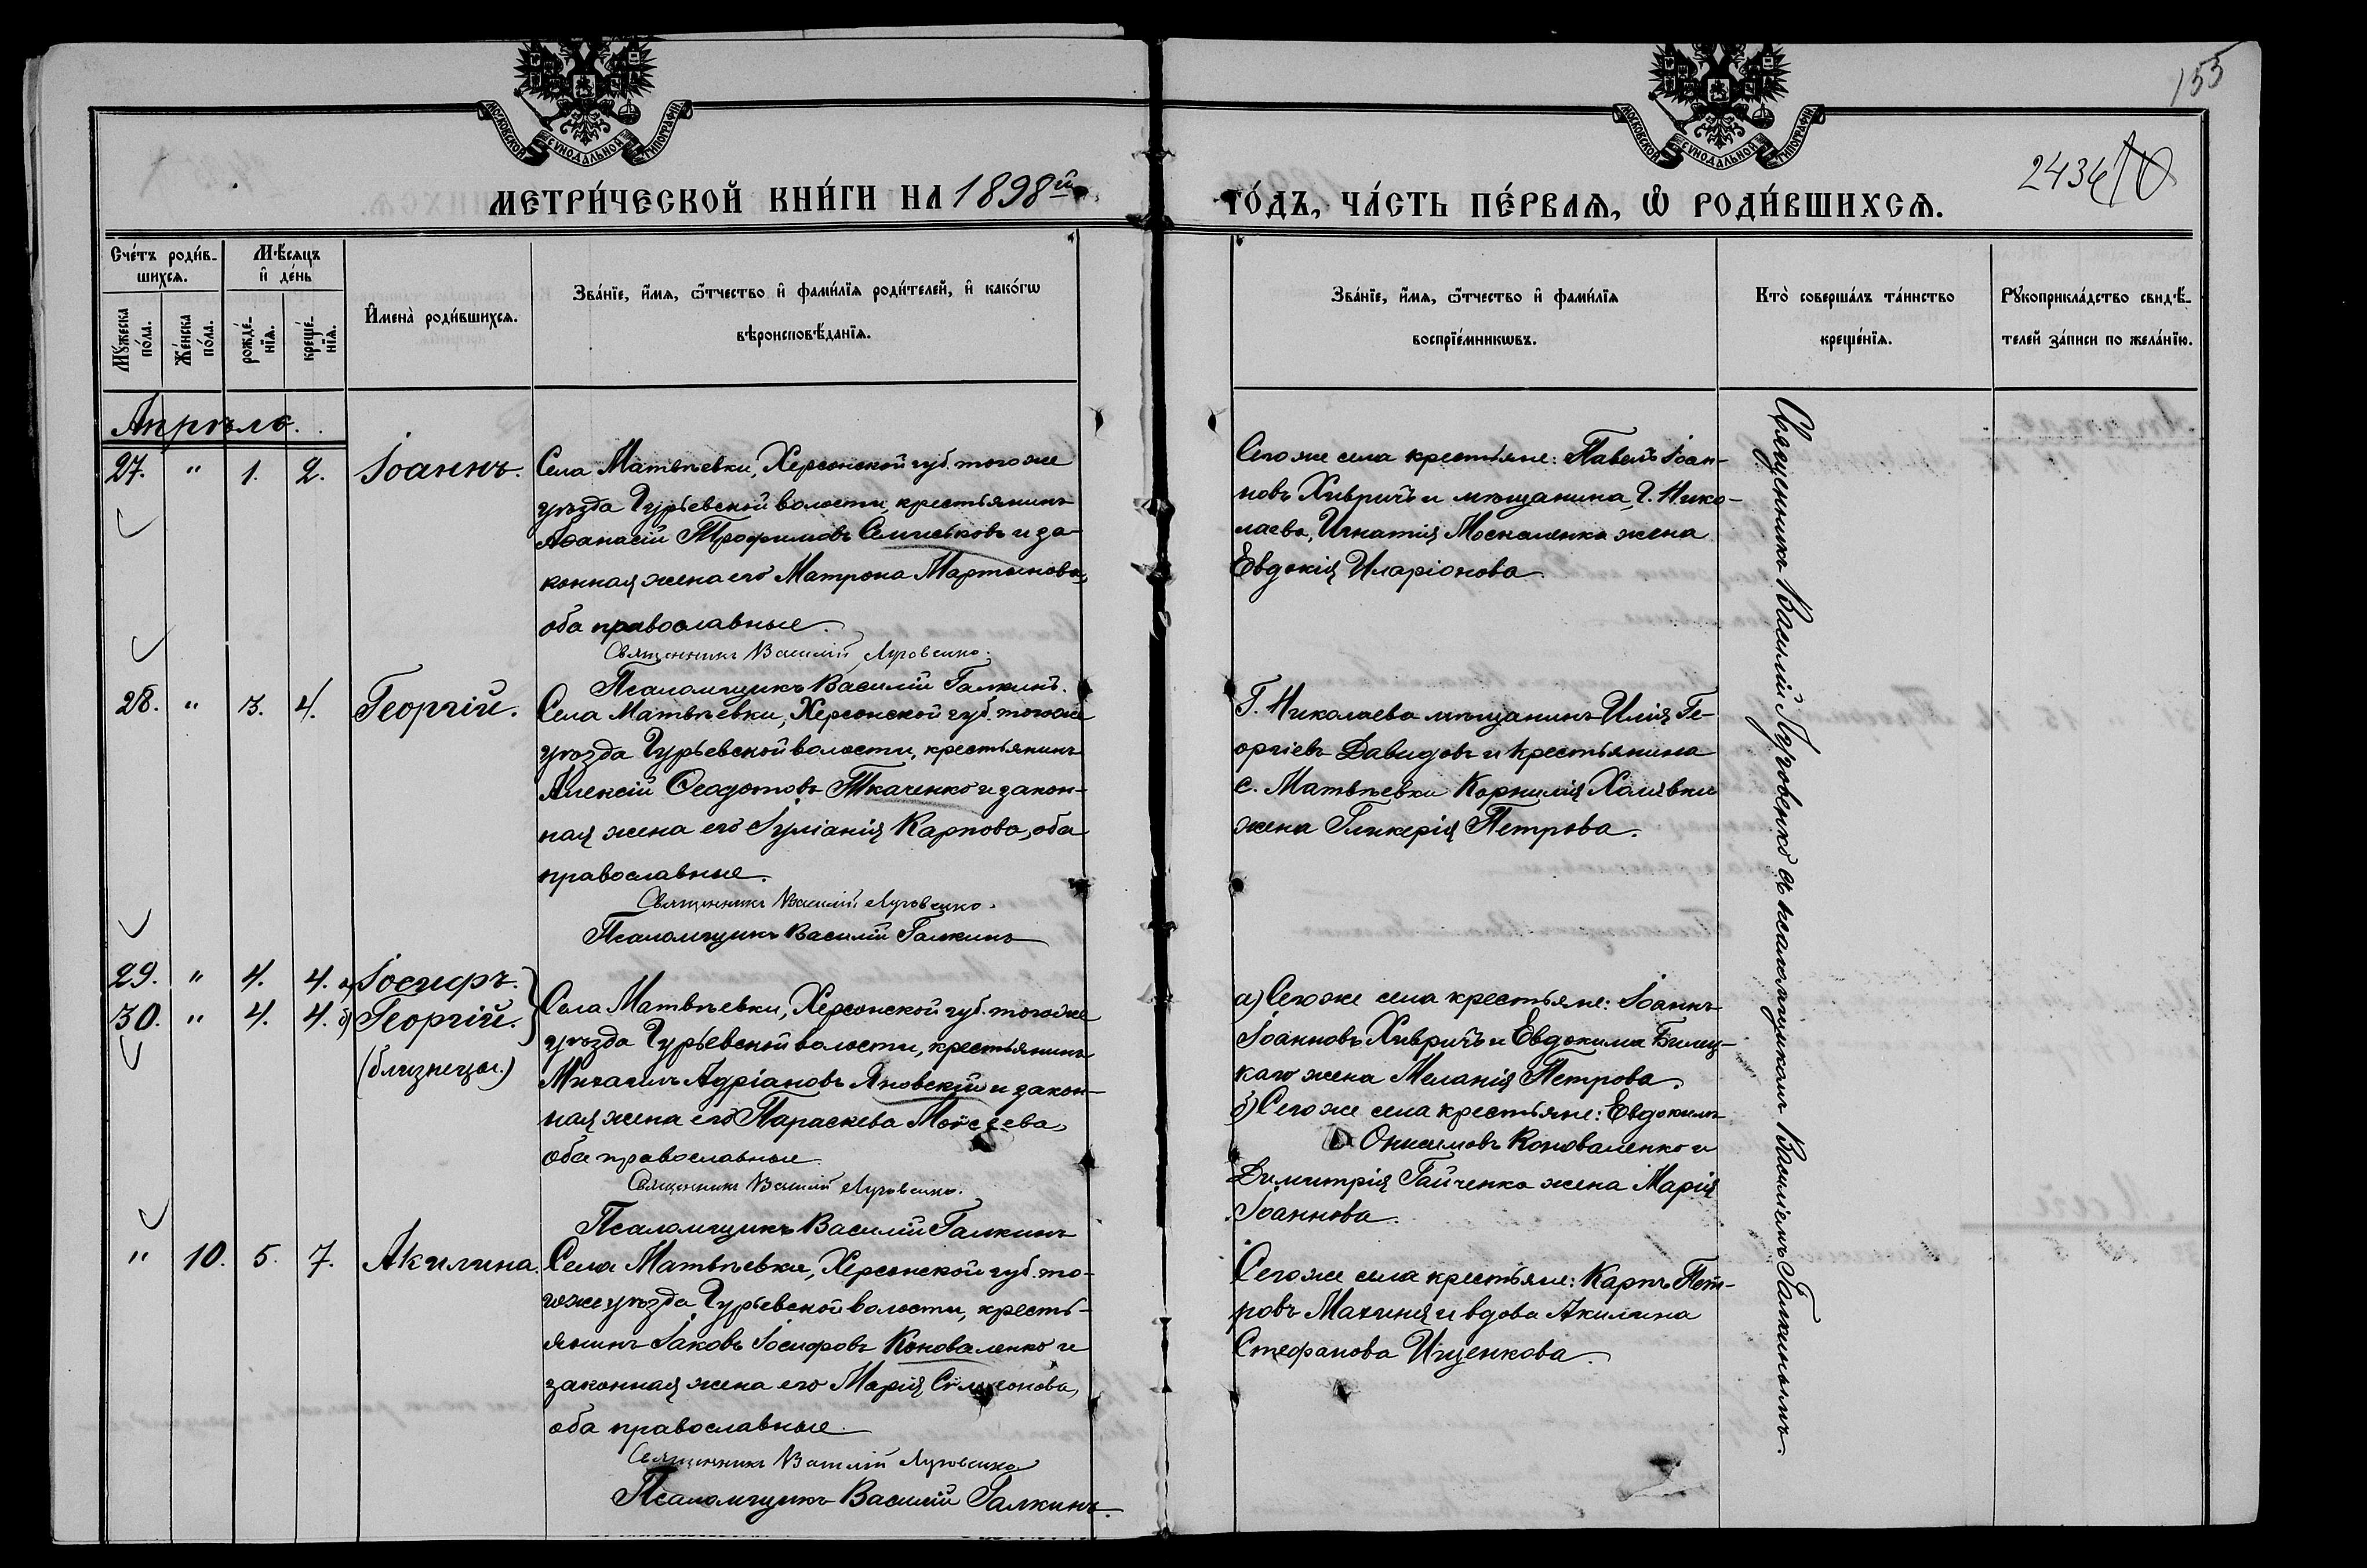 155
2434
МОСКОВСКОЙ СѴНОДАЛЬНОЙ ТИПОГРАФІИ
МОСКОВСКОЙ СѴНОДАЛЬНОЙ ТИПОГРАФІИ
МЕТРИ́ЧЕСКОЙ КНИ́ГИ НА 1898й
ГО́ДЪ, ЧА́СТЬ ПЕ́РВАѦ, Ѡ҆ РОДИ́ВШИХСѦ.
Сче́тъ роди́в-
шихсѧ.
Мѣ́сѧцъ
и҆ де́нь
Мꙋ́жеска
по́ла.
Же́нска
по́ла.
рожде́-
нїѧ.
креще́-
нїѧ.
И҆мена̀ роди́вшихсѧ.
Зва́нїе, и҆́мѧ, ѻ҆́тчество и҆ фами́лїѧ роди́телей, и҆ како́гѡ
вѣроисповѣ́данїѧ.
Зва́нїе, и҆́мѧ, ѻ҆́тчество и҆ фами́лїѧ
воспрїе́мникѡвъ.
Кто̀ соверша́лъ та́инство
креще́нїѧ.
Рꙋкоприкла́дство свидѣ́-
телей за́писи по жела́нїю.
Апрѣль.
27. " 1. 2. Іоаннъ.
Села Матвѣевки, Херсонской губ. того же
уѣзда Гурьевской волости, крестьянинъ
Аѳанасій Трофимовъ и за-
конная жена его Матрона Мартынова,
оба православные.
Священникъ Василій Луговенко.
Псаломщикъ Василій Галкинъ.
Сего же села крестьяне: Павелъ Іоан-
новъ Хивричъ и мѣщанина, г. Нико-
лаева, Игнатія Москаленка жена
Евдокія Иларіонова.
28. " 3. 4. Георгій.
Села Матвѣевки, Херсонской губ. того же
уѣзда Гурьевской волости, крестьянинъ
Алексій Ѳеодотовъ Ткаченко и закон-
ная жена его Іуліанія Карпова, оба
православные.
Священникъ Василій Луговенко.
Псаломщикъ Василій Галкинъ
Г. Николаева мѣщанинъ Илія Ге-
оргіевъ Давидовъ и крестьянина
с. Матвѣевки Корнилія Халявки
жена Гликерія Петрова.
29. " 4. 4. а) Іосифъ.
30. " 4. 4. б) Георгій.
(близнецы.)
Села Матвѣевки, Херсонской губ. того же
уѣзда Гурьевской волости, крестьянинъ
Михаилъ Адріановъ Яновскій и закон-
ная жена его Параскева Моисеева,
оба православные.
Священникъ Василій Луговенко.
Псаломщикъ Василій Галкинъ
а) Сего же села крестьяне: Іоаннъ
Іоанновъ Хивричъ и Евдокима Билец-
каго жена Меланія Петрова.
б) Сего же села крестьяне: Евдокимъ
Онисимовъ Коноваленко и
Димитрія Гайченка жена Марія
Іоаннова.
" 10. 5. 7. Акилина.
Села Матвѣевки, Херсонской губ. то-
гоже уѣзда Гурьевской волости, кресть-
янинъ Іаковъ Іосифовъ Коноваленко и
законная жена его Марія Симеонова,
оба православные.
Священникъ Василій Луговенко
Псаломщикъ Василій Галкинъ.
Сего же села крестьяне: Карпъ Пет-
ровъ Махиня и вдова Акилина
Стефанова Ищенкова.
Священникъ Василій Луговенко съ псаломщикомъ Василіемъ Галкинымъ.